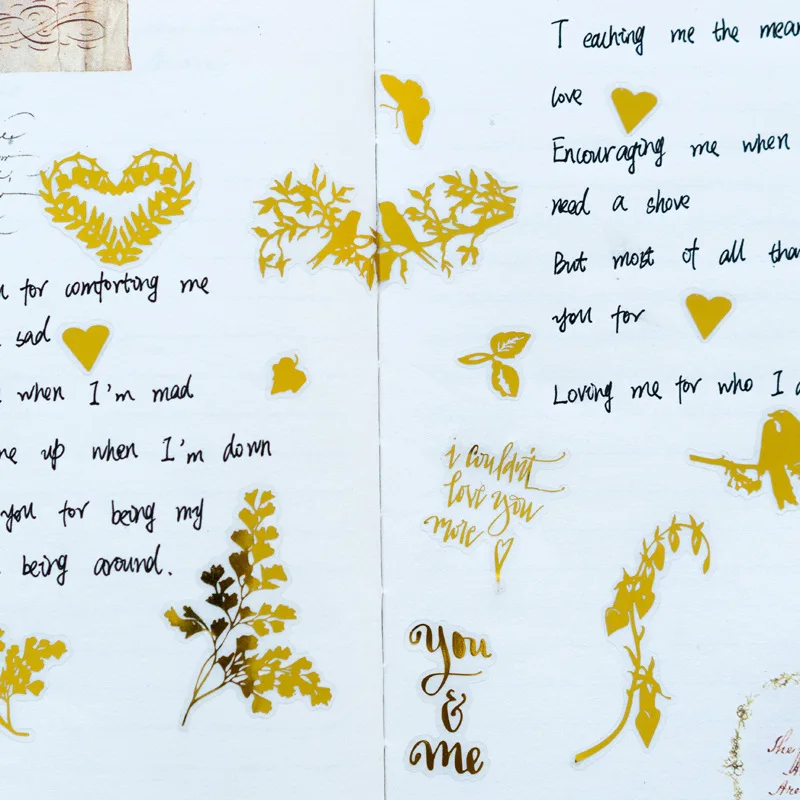 for comforting me
sad
when I'm mad
up when I'm down
you for being my
being around.
Teaching me the
love
Encouraging me when
need a shove
But most of all
you for
Loving me for who I
i couldn't
love you
more
you
&
me